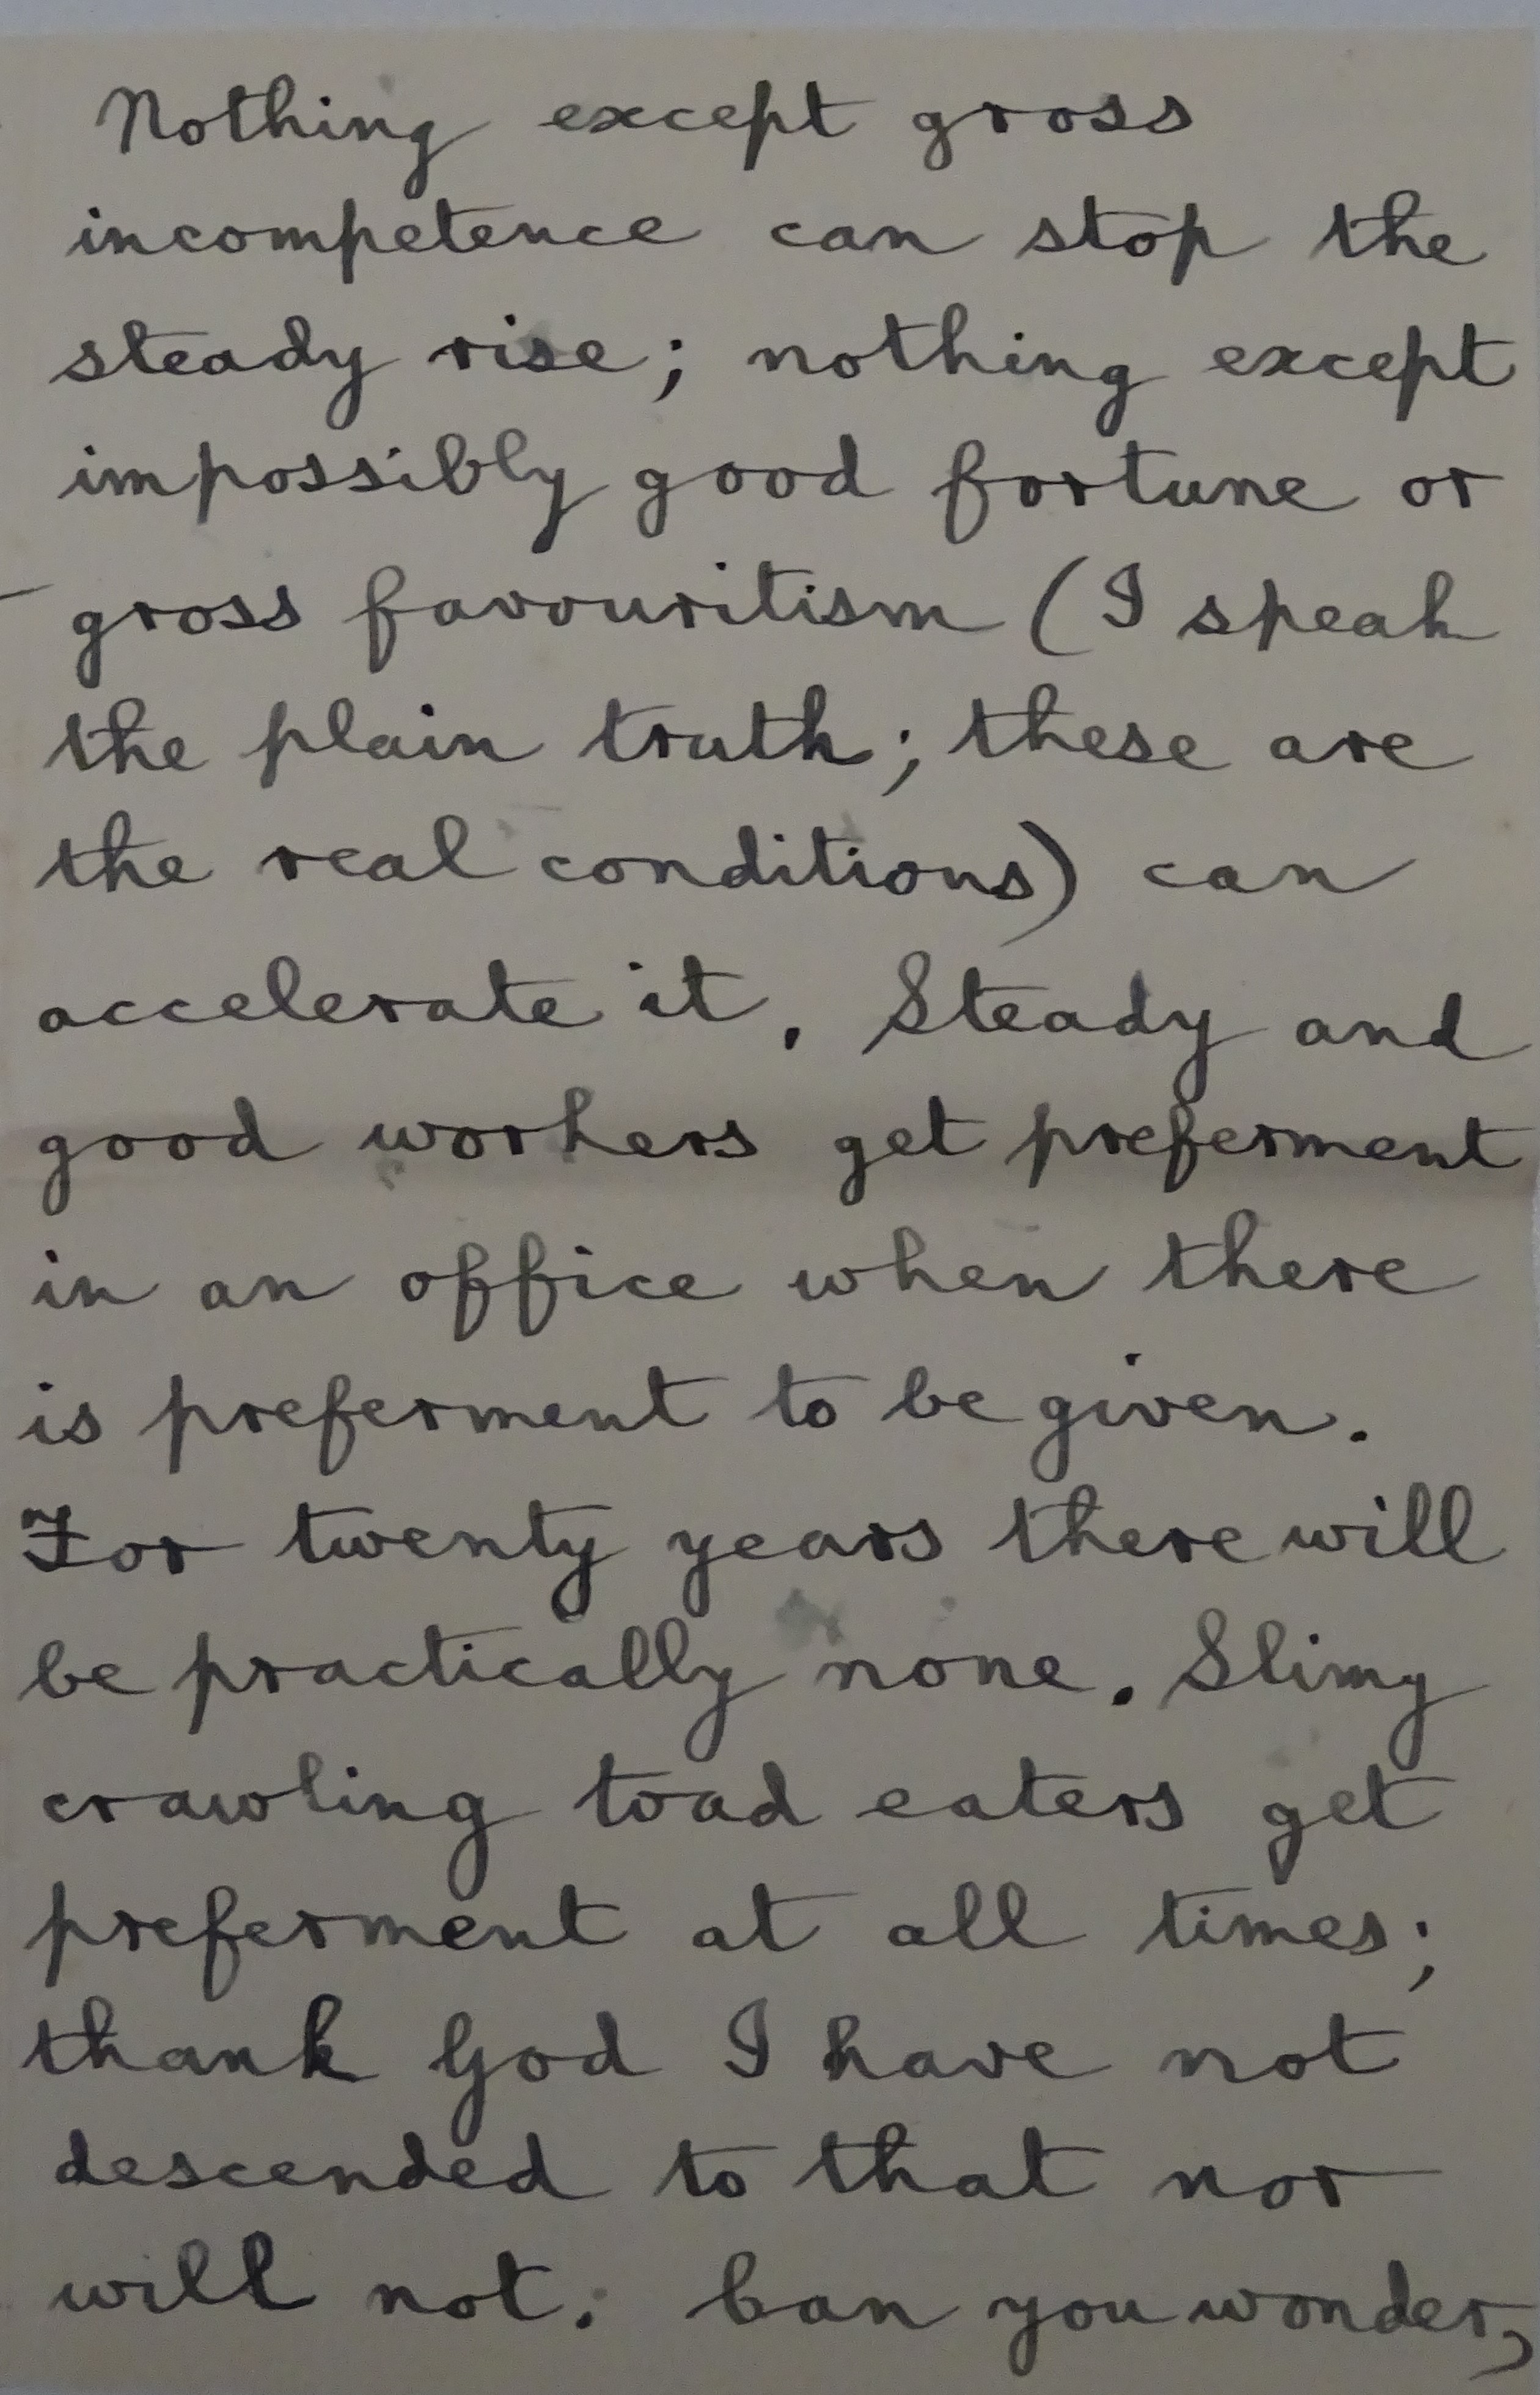 Nothing except gross
incompetence can stop the
steady rise; nothing except
impossibly good fortune or
gross favouritism (I speak
the plain truth; these are
the real conditions) can
accelerate it. Steady and
good workers get preferment
in an office when there
is preferment to be given.
For twenty years there will
be practically none. Slimy
crawling toad eaters get
preferment at all times;
thank God I have not
descended to that nor
will not. Can you wonder,